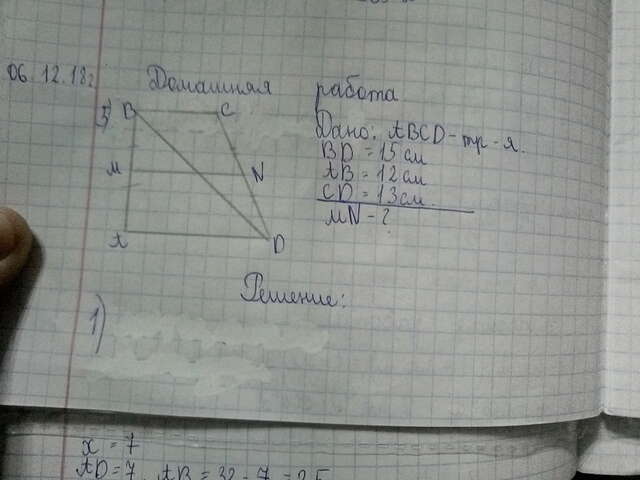 06.12.18г.
Домашняя работа
3)
B C
M N
A D
Дано: ABCD - тр-я.
BD = 15 см
AB = 12 см
CD = 13 см
MN - ?
Решение:
1)
x = 7
AD = 7, AB = 32 - 7 = 25